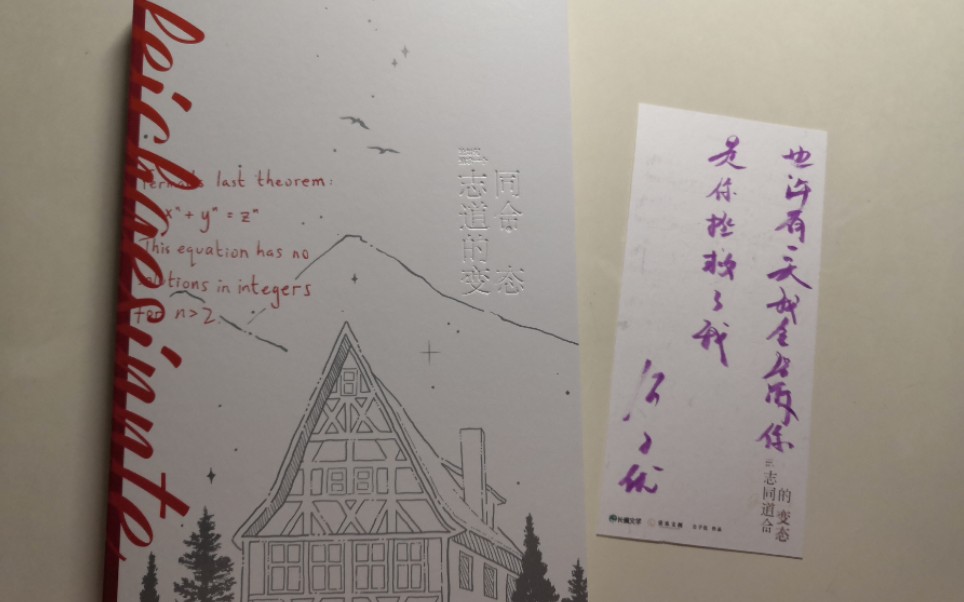 leichgesinnte
Fermat's last theorem:
xⁿ + yⁿ = zⁿ
This equation has no
solutions in integers
for n>2.
志同
道合
的
变态
也许有一天我会告诉你
是你拯救了我
志同道合
的变态
长佩文学